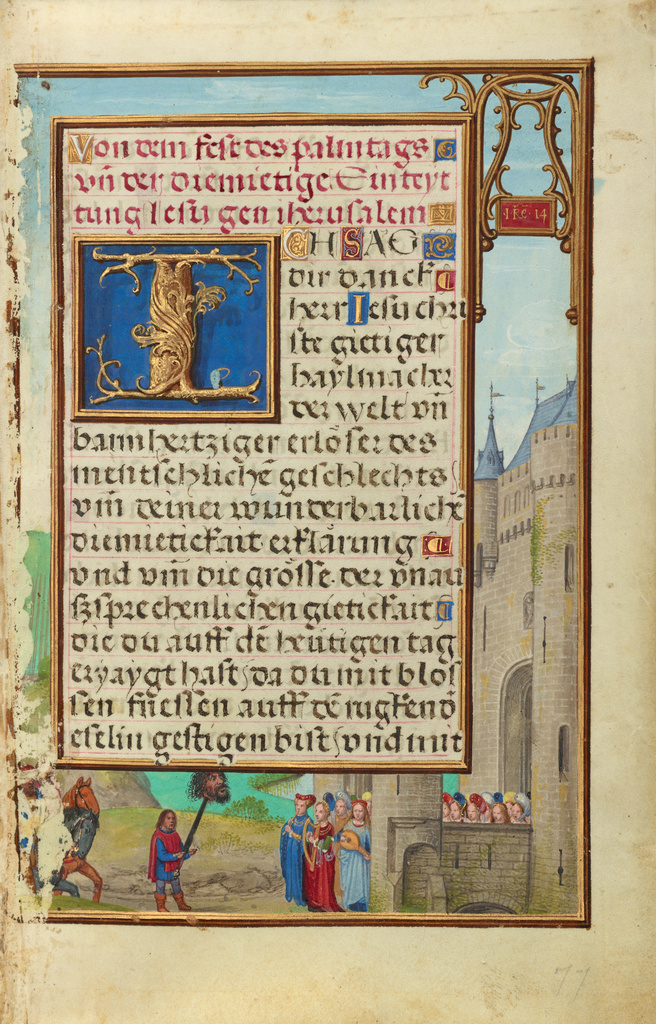 Von dem fest des palmtags
vn̄ der diemietige Einreyt
tung Iesu gen iherusalem
·I·RE·14
ICH SAG
dir danck
herr Iesu chri
ste gietiger
haylmacher
der welt vn̄
barmhertziger erlöser des
menschlichē geschlechts
vm̄ deiner wunderbarlichē
diemietickait erklärung
vnd vm̄ die grösse der vnau
szsprechenlichen gietickait
die du auff dē heutigen tag
erzaygt hast, da du mit blos
sen fuessen auff dē rugken ð
eselin gestigen bist, vnd mit
77